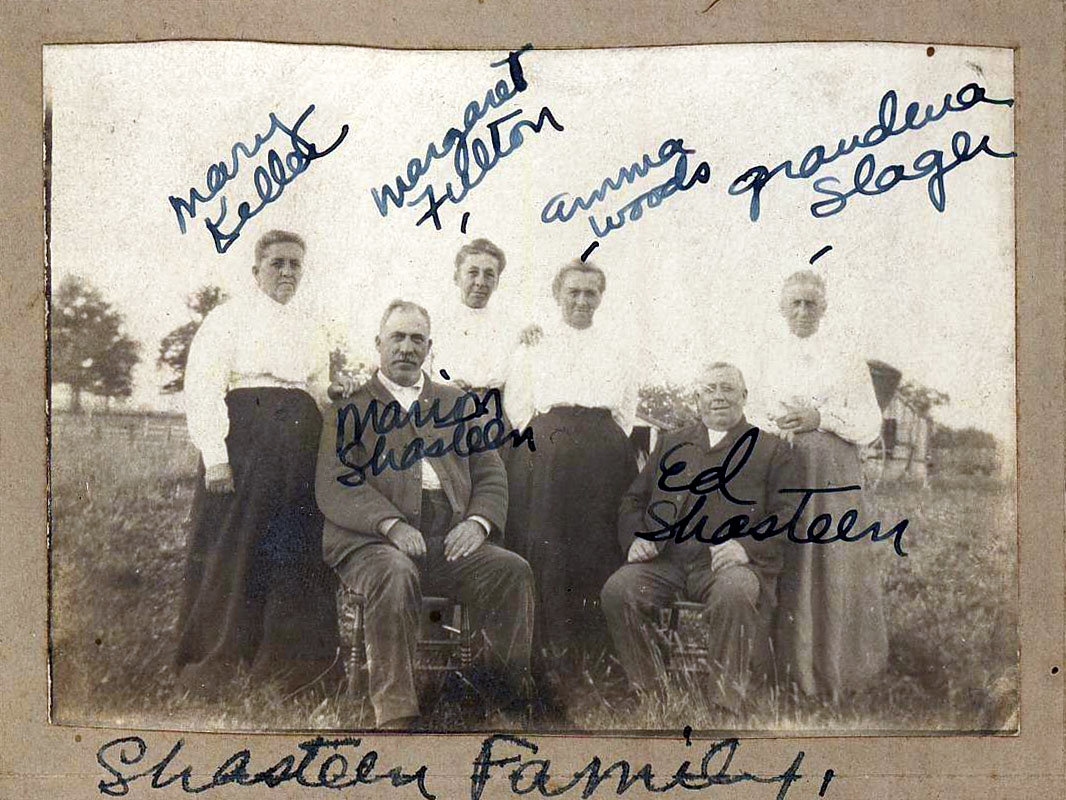 Mary
Keller
Margaret
Fullton
Amma
Woods
Grandma
Slager
Marion
Shasteen
Ed
Shasteen
Shasteen Family,